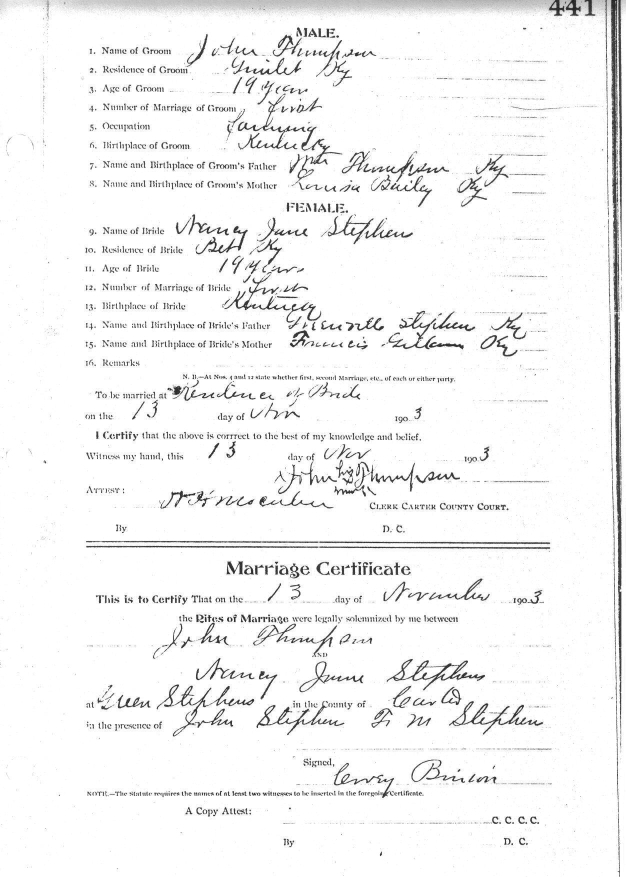 441
MALE.
1. Name of Groom John Thompson
2. Residence of Groom Ky
3. Age of Groom 19 years
4. Number of Marriage of Groom First
5. Occupation Farming
6. Birthplace of Groom Kentucky
7. Name and Birthplace of Groom's Father Wm Thompson Ky
8. Name and Birthplace of Groom's Mother Louisa Bailey Ky
FEMALE.
9. Name of Bride Nancy Jane Stephen
10. Residence of Bride Bet Ky
11. Age of Bride 19 years
12. Number of Marriage of Bride First
13. Birthplace of Bride Kentucky
14. Name and Birthplace of Bride's Father Stephen Ky
15. Name and Birthplace of Bride's Mother Francis Ky
16. Remarks
N. B.—At Nos. 4 and 12 state whether first, second Marriage, etc., of each or either party.
To be married at Residence of Bride
on the 13 day of Nov 1903
I Certify that the above is corrrect to the best of my knowledge and belief.
Witness my hand, this 13 day of Nov 1903
John his x mark Thompson
ATTEST: CLERK CARTER COUNTY COURT.
By D. C.
Marriage Certificate
This is to Certify That on the 13 day of November 1903
the Rites of Marriage were legally solemnized by me between
John Thompson
AND
Nancy Jane Stephens
at Green Stephens in the County of Carter
in the presence of John Stephen F M Stephen
Signed,
NOTE.—The Statute requires the names of at least two witnesses to be inserted in the foregoing Certificate.
A Copy Attest: C. C. C. C.
By D. C.